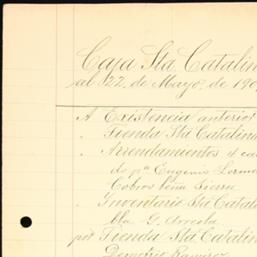 Caja Sta Catalin
al 22 de Mayo de 190
A Existencia anterior
" Tienda Sta Catalina
" Arrendamientos y ca
do pr Eugenio
Cobros leña Sierra
" Inventario Sta Catal
G. Arreola
por Tienda Sta Catalin
Demetrio Ramirez